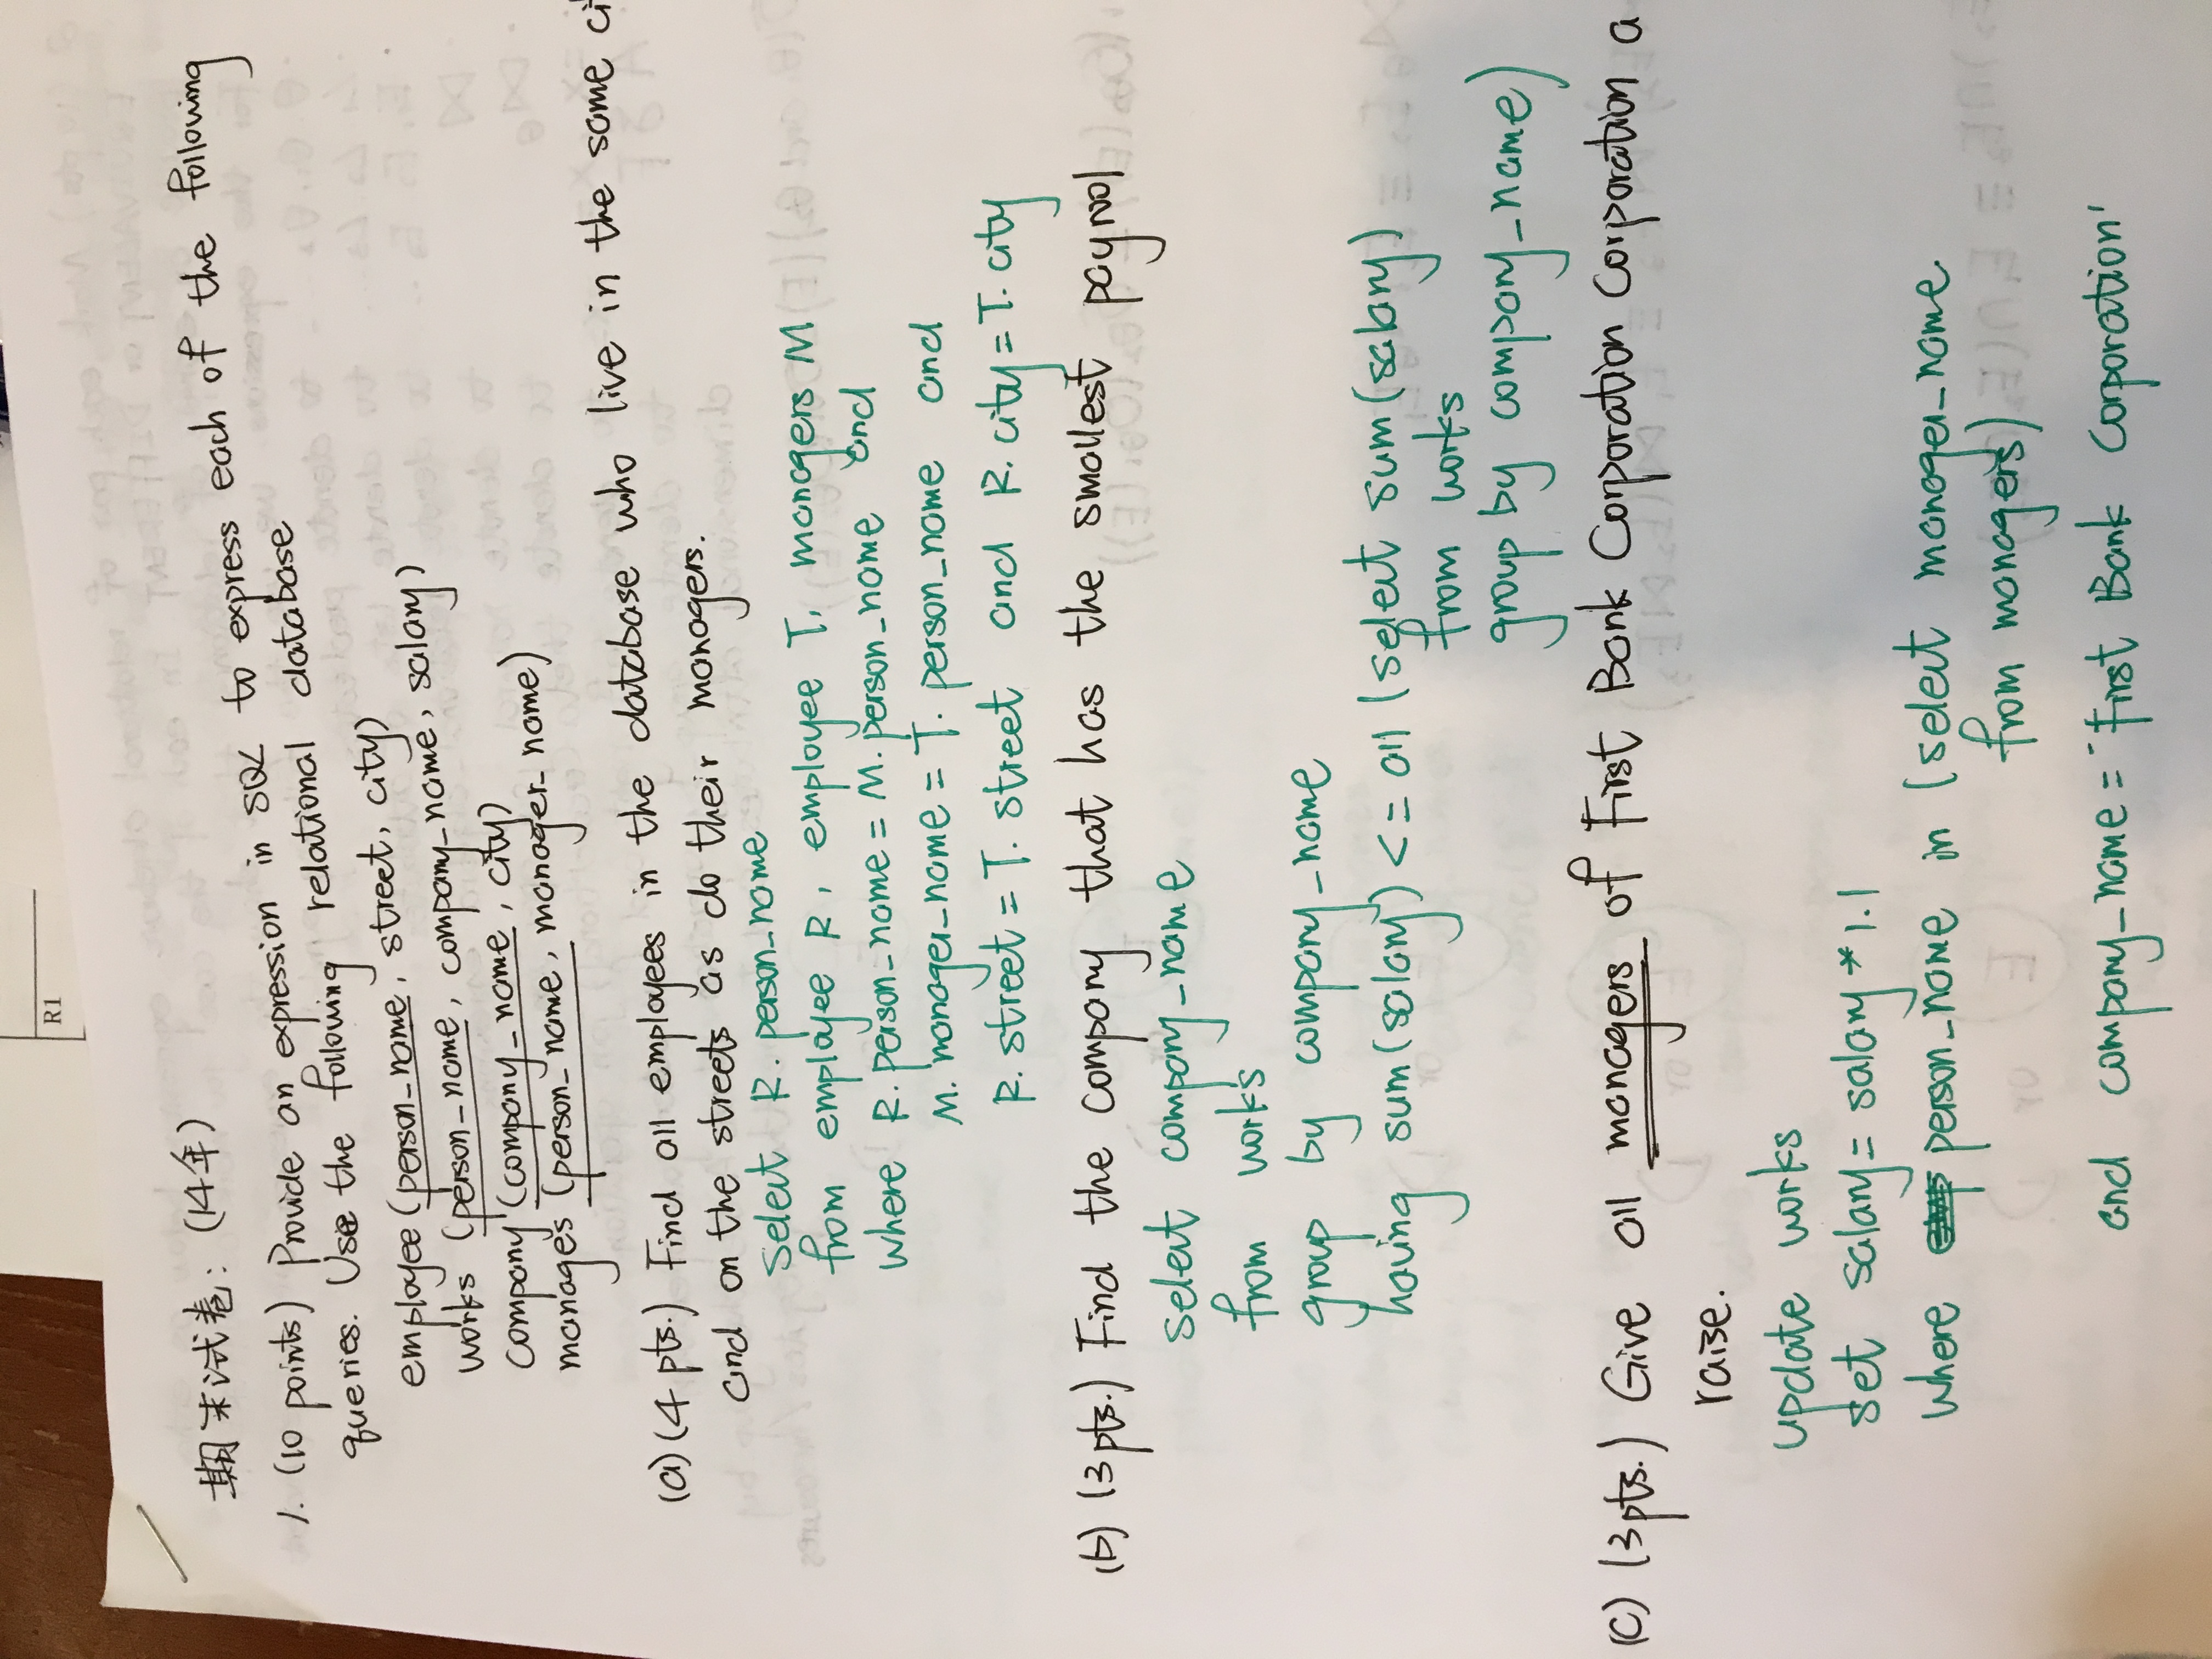 R1
期末试卷：(14年)
1. (10 points) Provide an expression in SQL to express each of the following
queries. Use the following relational database
employee (person_name, street, city)
works (person_name, company_name, salary)
company (company_name, city)
manages (person_name, manager_name)
(a) (4 pts.) Find all employees in the database who live in the same ci
and on the streets as do their managers.
select R. person_name
from employee R, employee T, managers M
where R. person_name = M. person_name and
M. manager_name = T. person_name and
R. street = T. street and R. city = T. city
(b) (3 pts.) Find the company that has the smallest payrool
select company_name
from works
group by company_name
having sum(salary) <= all (select sum(salary)
from works
group by company_name)
(c) (3 pts.) Give all managers of First Bank Corporation Corporation a
raise.
update works
set salary = salary * 1.1
where person_name in (select manager_name
from managers)
and company_name = 'First Bank Corporation'